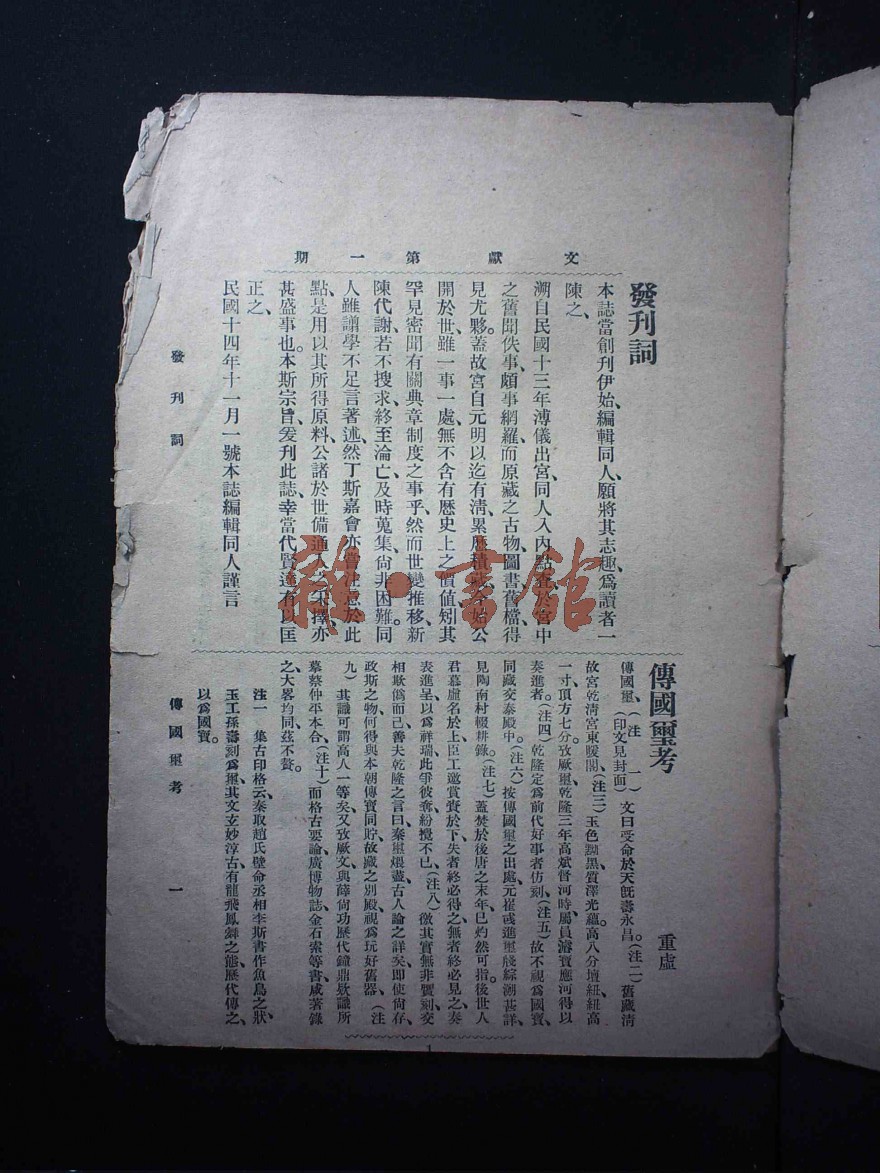 文獻第一期
發刊詞
本誌當創刊伊始、編輯同人、願將其志趣爲讀者一
陳之、
溯自民國十三年溥儀出宮、同人入內點查、於宮中
之舊聞佚事、頗事網羅、而原藏之古物、圖書、舊檔、得
見尤夥。蓋故宮自元明以迄有淸、累歷積
公
開於世、雖一事一處、無不含有歷史上之價値、矧其
罕見密聞有關典章制度之事乎、然而世變推移、新
陳代謝、若不搜求、終至淪亡、及時蒐集、尙非困難。同
人雖譾學不足言著述、然丁斯嘉會、亦
於此
點、是用以其所得原料、公諸於世、備通人之采擇、亦
甚盛事也。本斯宗旨、爰刊此誌、幸當代賢達有以匡
正之、
民國十四年十一月一號本誌編輯同人謹言
傳國璽考
重虛
傳國璽、(注一)(印文見封面)文曰受命於天旣壽永昌。(注二)舊藏淸
故宮乾淸宮東暖閣、(注三)玉色黝黑、質澤光蘊、高八分、壇紐、紐高
一寸、頂方七分、攷厥璽、乾隆三年高斌督河時、屬員濬寶應河得以
奏進者。(注四)乾隆定爲前代好事者仿刻、(注五)故不視爲國寶、
同藏交泰殿中。(注六)按傳國璽之出處、元崔彧進璽牋綜溯甚詳、
見陶南村輟耕錄。(注七)蓋焚於後唐之末年、已灼然可指、後世人
君慕虛名於上、臣工邀賞賚於下、失者終必得之、無者終必見之、奏
表進呈、以爲祥瑞、此爭彼奪、紛擾不已、(注八)徵其實、無非贋刻、交
相欺僞而已、善夫乾隆之言曰、秦璽煨燼、古人論之詳矣、卽使尙存、
政斯之物、何得與本朝傳寶同貯、故藏之別殿、視爲玩好舊器、(注
九)其識可謂高人一等矣、又攷厥文與薛尙功歷代鐘鼎欵識所
摹蔡仲平本合、(注十)而格古要論、廣博物誌、金石索等書、咸著錄
之、大畧均同、茲不贅。
注一 集古印格云、秦取趙氏璧、命丞相李斯書、作魚鳥之狀、
玉工孫壽刻爲璽、其文玄妙淳古、有龍飛鳳舞之態、歷代傳之、
以爲國寶。
發刊詞
傳國璽考
一
雜·書館